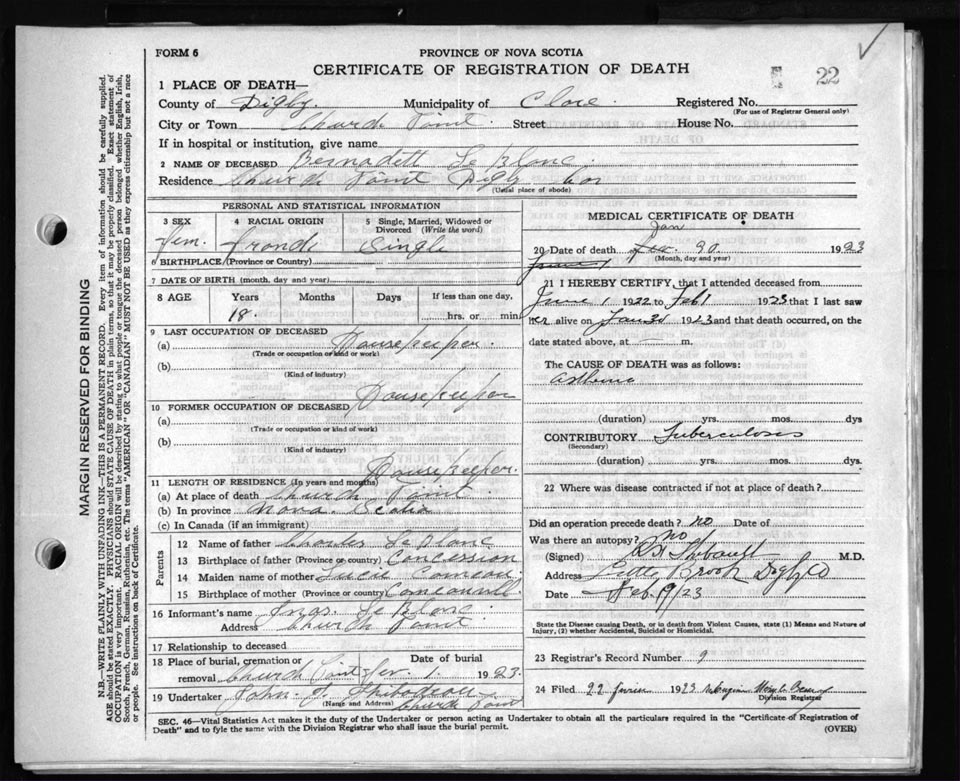 FORM 6
PROVINCE OF NOVA SCOTIA
CERTIFICATE OF REGISTRATION OF DEATH
22
1 PLACE OF DEATH—
County of Digby. Municipality of Clare. Registered No.
(For use of Registrar General only)
City or Town Church Point. Street House No.
If in hospital or institution, give name
2 NAME OF DECEASED Bernadett Le Blanc.
Residence Church Point Digby Co
(Usual place of abode)
PERSONAL AND STATISTICAL INFORMATION
3 SEX 4 RACIAL ORIGIN 5 Single, Married, Widowed or Divorced (Write the word)
Fem. French Single
6 BIRTHPLACE (Province or Country)
7 DATE OF BIRTH (month, day and year)
8 AGE Years Months Days If less than one day,
18. hrs. or min.
9 LAST OCCUPATION OF DECEASED
(a) Housekeeper.
(Trade or occupation or kind or work)
(b)
(Kind of industry)
Housekeeper
10 FORMER OCCUPATION OF DECEASED
(a)
(Trade or occupation or kind of work)
(b)
(Kind of industry)
Housekeeper.
11 LENGTH OF RESIDENCE (In years and months)
(a) At place of death Church Point.
(b) In province Nova Scotia
(c) In Canada (if an immigrant)
Parents
12 Name of father Charles Le Blanc
13 Birthplace of father (Province or country) Concession
14 Maiden name of mother Lucie Comeau
15 Birthplace of mother (Province or country)
16 Informant's name Le Blanc.
Address Church Point
17 Relationship to deceased
18 Place of burial, cremation or removal Church Point Date of burial Fev. 1. 1923
19 Undertaker John J. Thibodeau
(Name and Address) Church Point
MEDICAL CERTIFICATE OF DEATH
Jan
20 Date of death 30. 1923
(Month, day and year)
June 1
21 I HEREBY CERTIFY, that I attended deceased from
June 1 1922 to Feb 1 1923 that I last saw
her alive on Jan 30 1923 and that death occurred, on the
date stated above, at — m.
The CAUSE OF DEATH was as follows:
(duration) yrs. mos. dys
CONTRIBUTORY Tuberculosis
(Secondary)
(duration) yrs. mos. dys.
22 Where was disease contracted if not at place of death?
Did an operation precede death? No Date of
Was there an autopsy? No
(Signed) Thibault M.D.
Address Little Brook Digby Co
Date Feb. 9/23
State the Disease causing Death, or in death from Violent Causes, state (1) Means and Nature of
Injury, (2) whether Accidental, Suicidal or Homicidal.
23 Registrar's Record Number 9
24 Filed 22 fevrier 1923
Division Registrar
SEC. 46—Vital Statistics Act makes it the duty of the Undertaker or person acting as Undertaker to obtain all the particulars required in the "Certificate of Registration of
Death" and to fyle the same with the Division Registrar who shall issue the burial permit. (OVER)
MARGIN RESERVED FOR BINDING
N.B.—WRITE PLAINLY WITH UNFADING INK—THIS IS A PERMANENT RECORD. Every item of information should be carefully supplied.
AGE should be stated EXACTLY. PHYSICIANS should STATE CAUSE OF DEATH in plain terms, so that it may be properly classified. Exact statement of
OCCUPATION is very important. RACIAL ORIGIN will be described by stating to what people or tongue the deceased person belonged whether English, Irish,
Scotch, French, German, Russian, Ruthenian, etc. The terms "AMERICAN" OR "CANADIAN" MUST NOT BE USED as they express citizenship but not a race
or people. See instructions on back of Certificate.